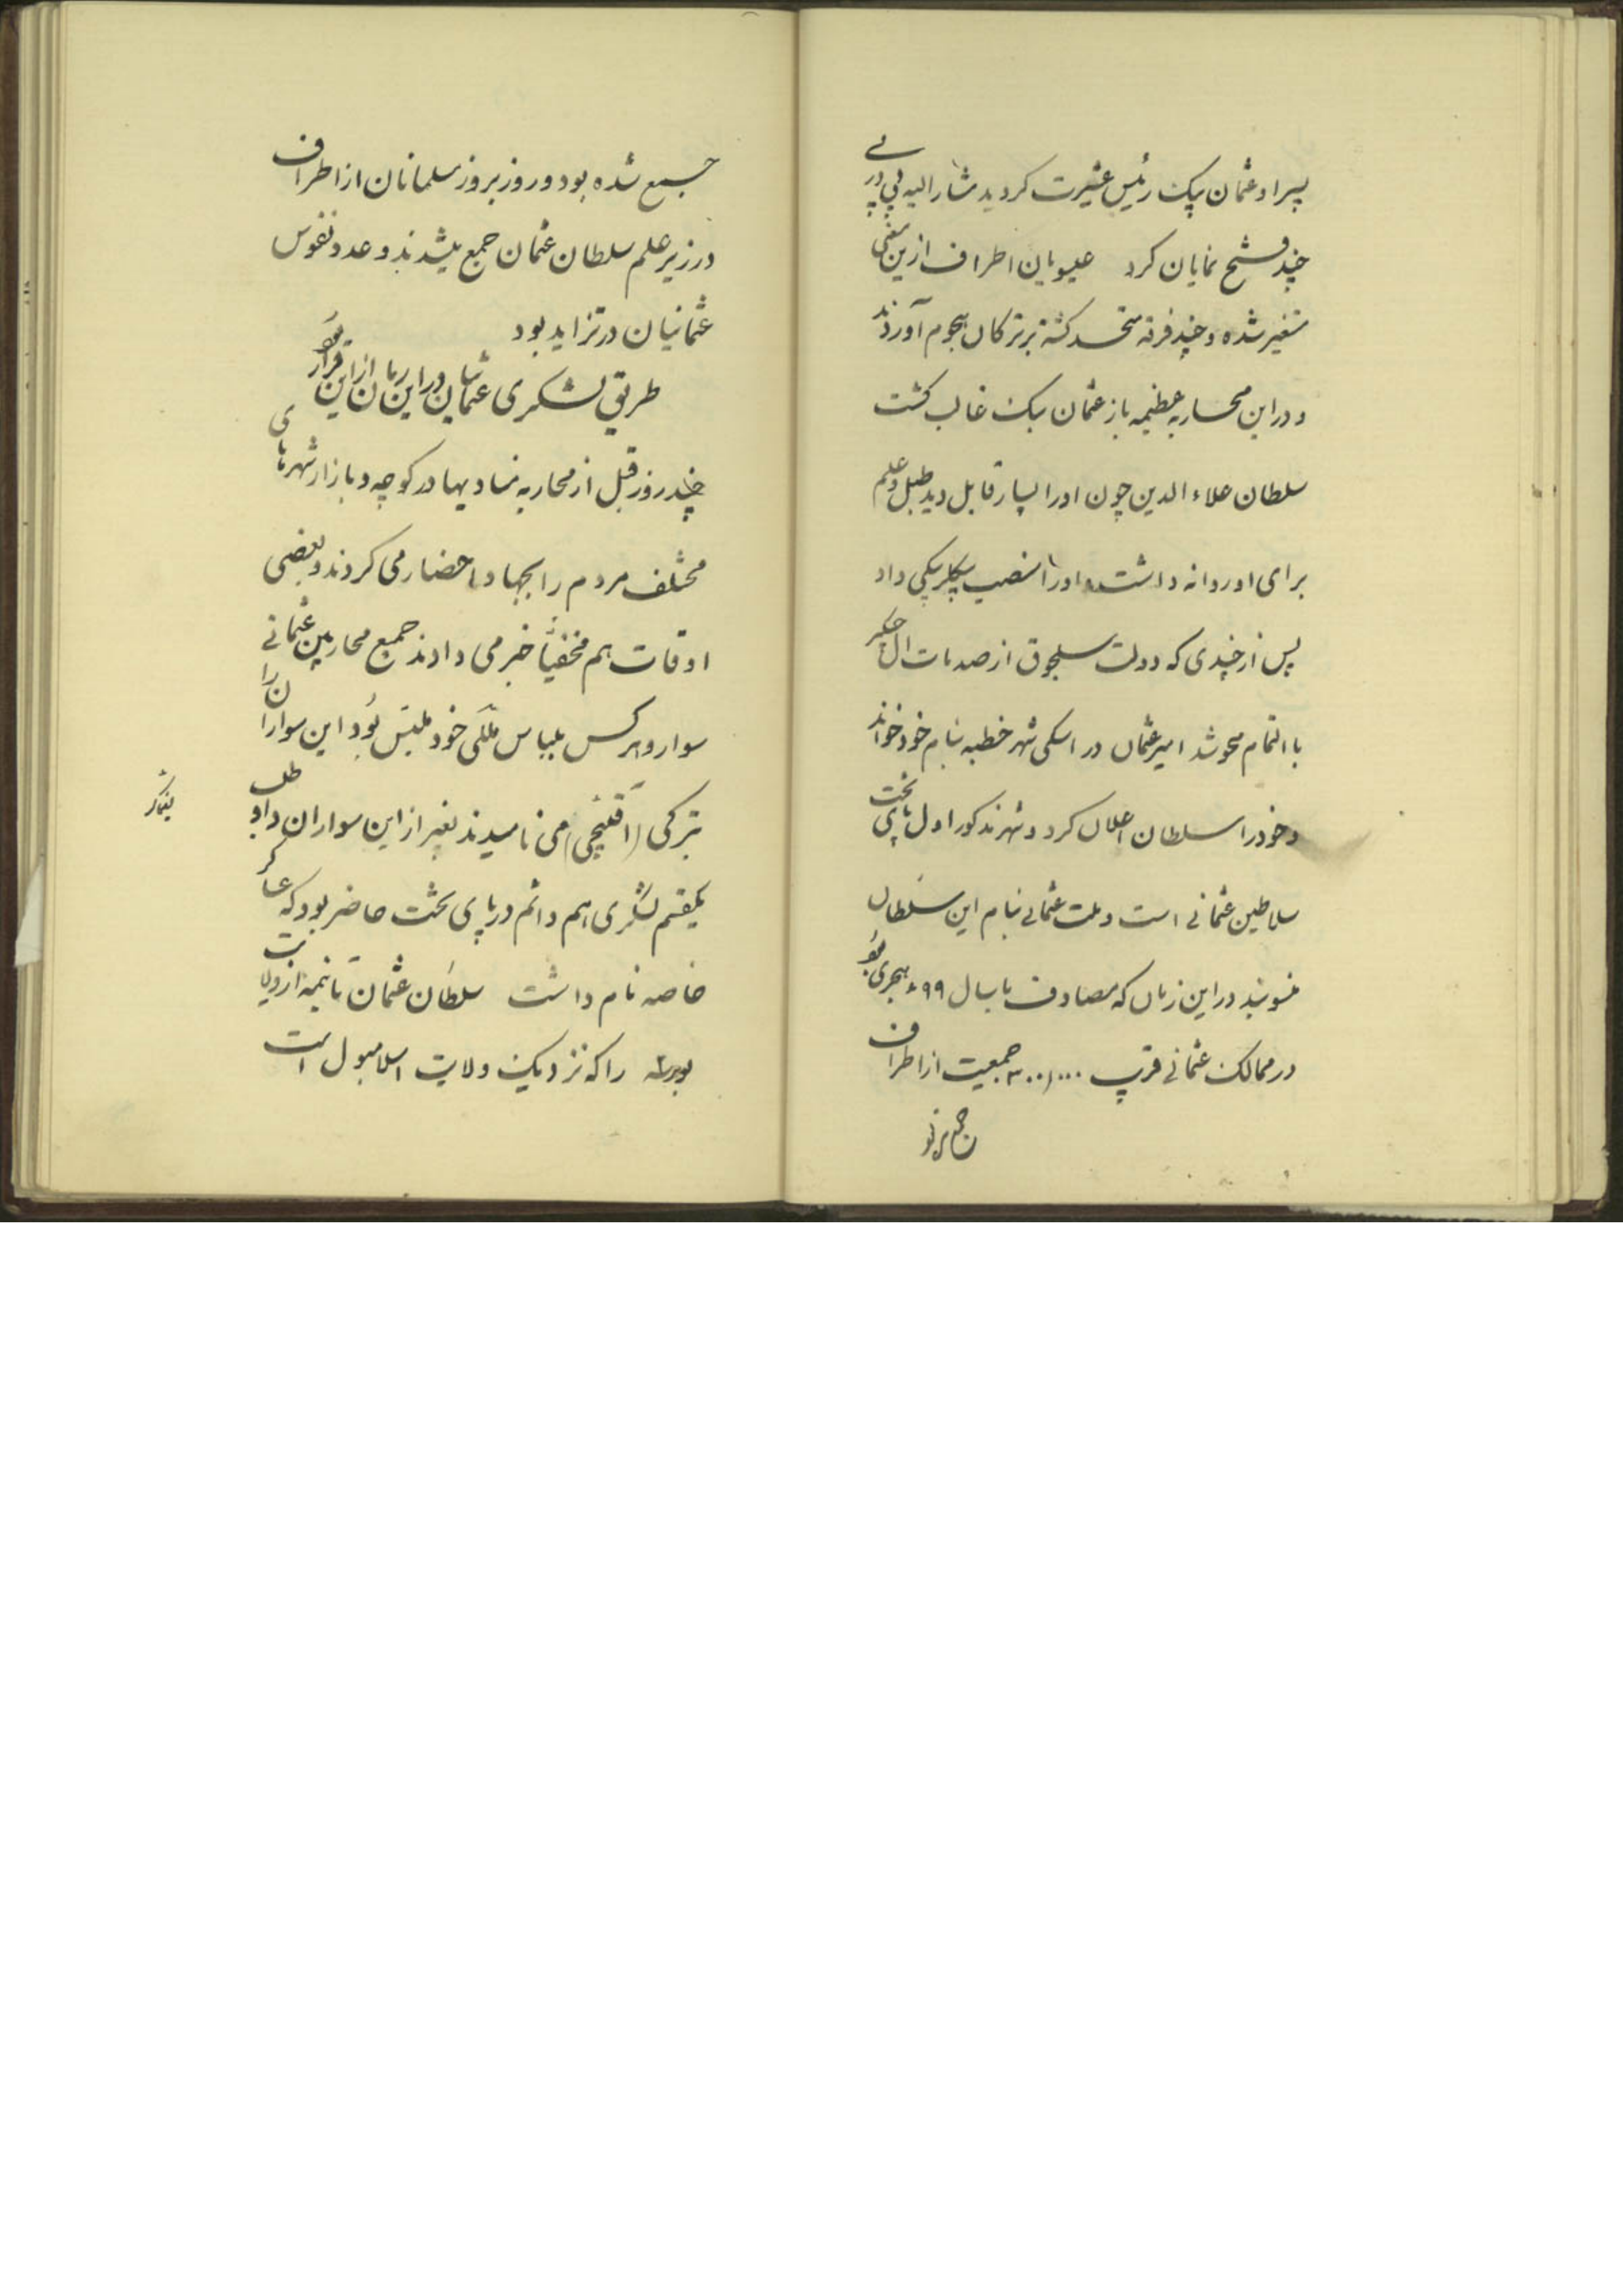 پسر او عثمان بیک رئیس عشیرت کردید مشار الیه پی در پی
چند فتح نمایان کرد عیسویان اطراف ازین معنی
متغیر شده و چند فرقه متحد کشته بر ترکان هجوم آوردند
و در این محاربه عظیمه باز عثمان بیک غالب کشت
سلطان علاء الدین چون او را بسیار قابل دید طبل و علم
برای او روانه داشت و او را منصب بیکلربیکی داد
پس از چندی که دولت سلجوق از صدمات ال چنکیز
با التمام محو شد امیر عثمان در اسکی شهر خطبه بنام خود خواند
و خود را سلطان اعلان کرد و شهر مذکور اول پای تخت
سلاطین عثمانی است و ملت عثمانی بنام این سلطان
منسوبند در این زمان که مصادف با سال ۶۹۹ هجری بود
در ممالک عثمانی قریب ۳۰۰٫۰۰۰ جمعیت از اطراف
جمع شده بود و روز بروز مسلمانان از اطراف
در زیر علم سلطان عثمان جمع میشدند و عدد نفوس
عثمانیان در تزاید بود
طریق لشکری عثمانیان در این زمان از این قرار بود
چند روز قبل از محاربه منادیها در کوچه و بازار شهرهای
مختلف مردم را بجهاد احضار می کردند و بعضی
اوقات هم مخفیاً خبر می دادند جمیع محاربین عثمانی
سوار و هر کس بلباس ملکی خود ملبس بود این سواران را
بترکی (آقنچی) می نامیدند بغیر از این سواران داوطلب
یکقسم لشکری هم دائم در پای تخت حاضر بود که عساکر
خاصه نام داشت سلطان عثمان تا نیمه از ولایت
بورسه را که نزدیک ولایت اسلامبول است